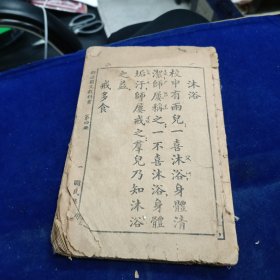 沐浴
校中有兩兒一喜沐浴身體清
潔師屢稱之一不喜沐浴身體
垢汙師屢戒之羣兒乃知沐浴
之益
戒多食